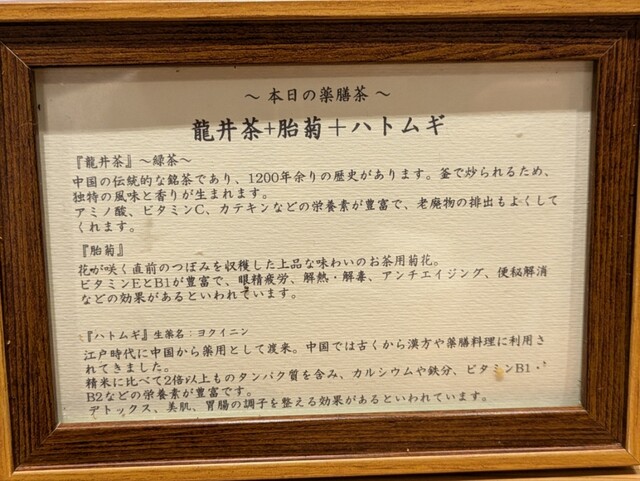 ～ 本日の薬膳茶 ～
龍井茶+胎菊＋ハトムギ
『龍井茶』～緑茶～
中国の伝統的な銘茶であり、1200年余りの歴史があります。釜で炒られるため、
独特の風味と香りが生まれます。
アミノ酸、ビタミンC、カテキンなどの栄養素が豊富で、老廃物の排出もよくして
くれます。
『胎菊』
花が咲く直前のつぼみを収穫した上品な味わいのお茶用菊花。
ビタミンEとB1が豊富で、眼精疲労、解熱・解毒、アンチエイジング、便秘解消
などの効果があるといわれています。
『ハトムギ』生薬名：ヨクイニン
江戸時代に中国から薬用として渡来。中国では古くから漢方や薬膳料理に利用さ
れてきました。
精米に比べて2倍以上ものタンパク質を含み、カルシウムや鉄分、ビタミンB1・
B2などの栄養素が豊富です。
デトックス、美肌、胃腸の調子を整える効果があるといわれています。